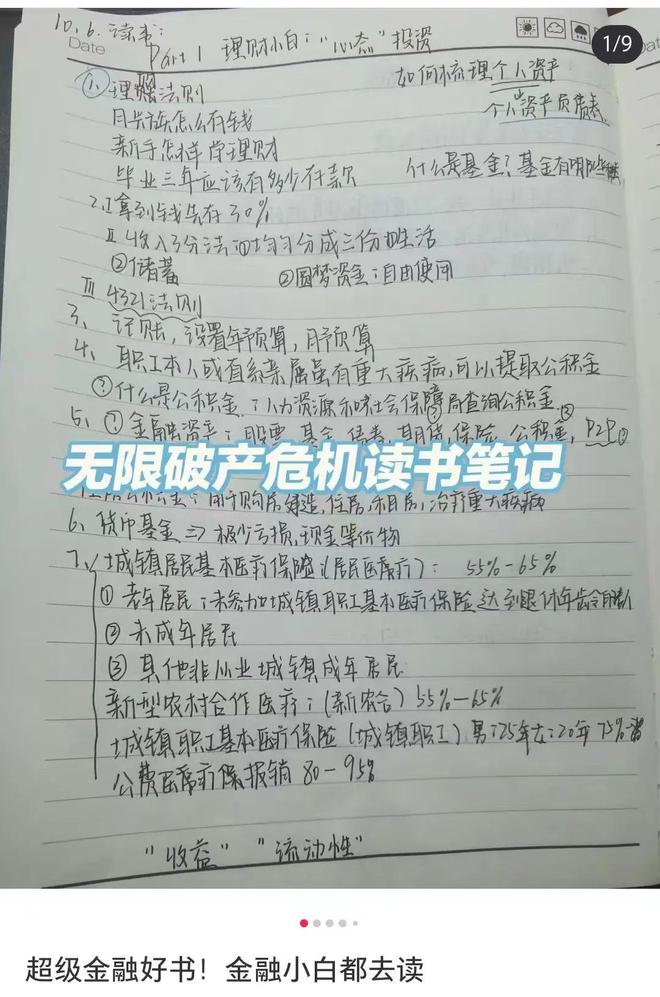 10.6.读书:
Date
Part 1 理财小白:"心态"投资
1/9
1、理财法则
如何梳理个人资产
个人资产负债表
月光族怎么存钱
新手怎样学理财
毕业三年应该有多少存款
什么是基金?基金有哪些
2.I 拿到钱先存30%
II 收入3分法 ①均匀分成三份 生活
②储蓄 ③圆梦资金:自由使用
III 4321法则
3、记账,设置年预算,月预算
4、职工本人或直系亲属虽有重大疾病,可以提取公积金
?什么是公积金:人力资源和社会保障局查询公积金
5、①金融资产:股票 基金 债券 期货 保险 公积金,P2P
无限破产危机读书笔记
住房公积金:用于购房,建造,住房,租房,治疗重大疾病
6、货币基金⇒极少亏损,现金等价物
7、城镇居民基本医疗保险(居民医疗):55%-65%
①老年居民:未参加城镇职工基本医疗保险达到退休年龄
②未成年居民
③其他非从业城镇成年居民
新型农村合作医疗:(新农合)55%-65%
城镇职工基本医疗保险(城镇职工)男:25年女:20年 75%
公费医疗保报销 80-95%
"收益" "流动性"
超级金融好书!金融小白都去读